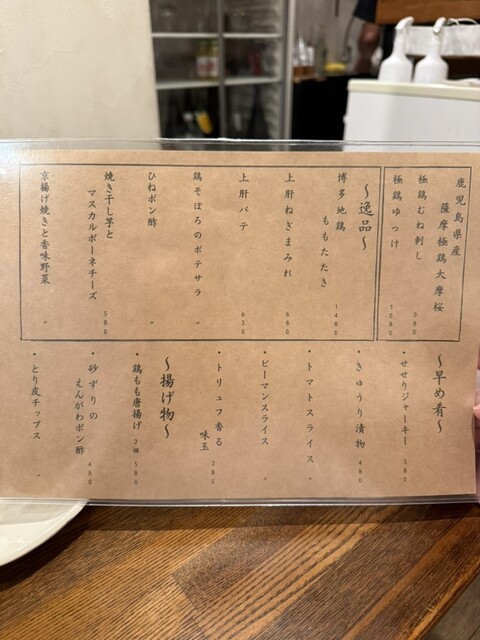 鹿児島県産
薩摩極鶏大摩桜
極鶏むね刺し 980
極鶏ゆっけ 1080
〜逸品〜
博多地鶏
ももたたき 1480
上肝ねぎまみれ 680
上肝パテ 630
鶏そぼろのポテサラ 〃
ひねポン酢 〃
焼き干し芋と
マスカルポーネチーズ 580
京揚げ焼きと香味野菜 〃
〜早め肴〜
・せせりジャーキー 580
・きゅうり漬物 480
・トマトスライス 〃
・ピーマンスライス 〃
・トリュフ香る
味玉 380
〜揚げ物〜
・鶏もも唐揚げ 2個 580
・砂ずりの
えんがわポン酢 480
・とり皮チップス 〃